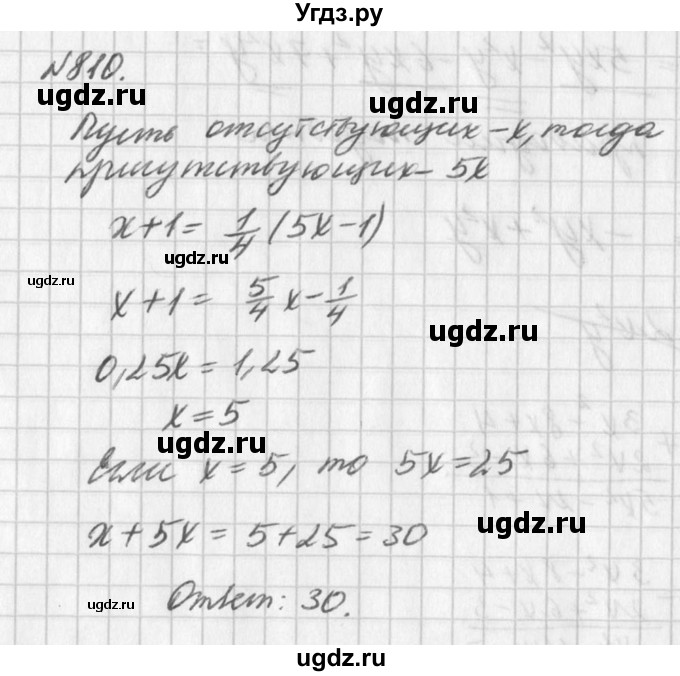 Угдз.ру
№810.
ugdz.ru
ugdz.ru
Пусть отсутствующих - x, тогда
присутствующих - 5x
x+1 = 1/4 (5x-1)
ugdz.ru
ugdz.ru
x+1 = 5/4 x - 1/4
ugdz.ru
0,25x = 1,25
x = 5
ugdz.ru
Если x = 5, то 5x = 25
ugdz.ru
x + 5x = 5 + 25 = 30
ugdz.ru
Ответ: 30.
ugdz.ru